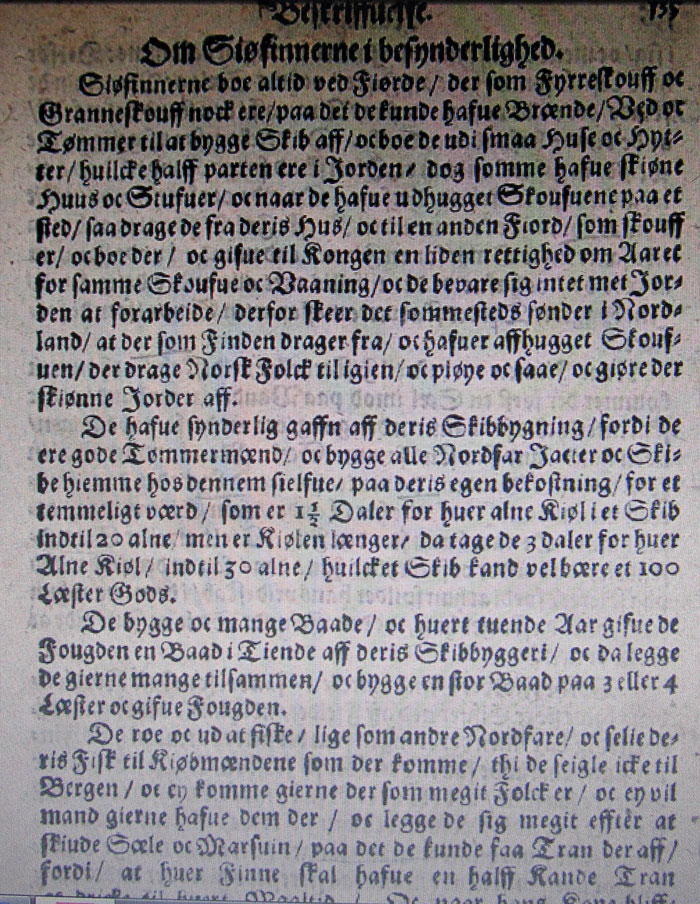 Beskriffuelse. 135
Om Siøfinnerne i besynderlighed.
Siøfinnerne boe altid ved Fiorde / der som Fyrreskouff oc
Granneskouff nock ere / paa det de kunde hafue Brænde / Ved oc
Tømmer til at bygge Skib aff / oc boe de udi smaa Huse oc Hyt-
ter / huilcke halff parten ere i Jorden / dog somme hafue skiøne
Huus oc Stufuer / oc naar de hafue udhugget Skoufuene paa et
sted / saa drage de fra deris Hus / oc til en anden Fiord / som skouff
er / oc boe der / oc gifue til Kongen en liden rettighed om Aaret
for samme Skoufue oc Vaaning / oc de bevare sig intet met Jor-
den at forarbeide / derfor skeer det sommesteds sønder i Nord-
land / at der som Finden drager fra / oc hafuer affhugget Skouf-
uen / der drage Norsk Folck til igien / oc pløye oc saae / oc giøre der
skiønne Jorder aff.
De hafue synderlig gaffn aff deris Skibbygning / fordi de
ere gode Tømmermænd / oc bygge alle Nordfar Jacter oc Ski-
be hiemme hos dennem sielfue / paa deris egen bekostning / for et
temmeligt værd / som er 1½ Daler for huer alne Kiøl i et Skib
indtil 20 alne / men er Kiølen længer / da tage de 3 daler for huer
Alne Kiøl / indtil 30 alne / huilcket Skib kand vel bære et 100
Læster Gods.
De bygge oc mange Baade / oc huert tuende Aar gifue de
Fougden en Baad i Tiende aff deris Skibbyggeri / oc da legge
de gierne mange tilsammen / oc bygge en stor Baad paa 3 eller 4
Læster oc gifue Fougden.
De roe oc ud at fiske / lige som andre Nordfare / oc selie de-
ris Fisk til Kiøbmændene som der komme / thi de seigle icke til
Bergen / oc ey komme gierne der som megit Folck er / oc ey vil
mand gierne hafue dem der / oc legge de sig megit effter at
skiude Sæle oc Marsuin / paa det de kunde faa Tran der aff /
fordi / at huer Finne skal hafue en halff Kande Tran
til huert Maaltid